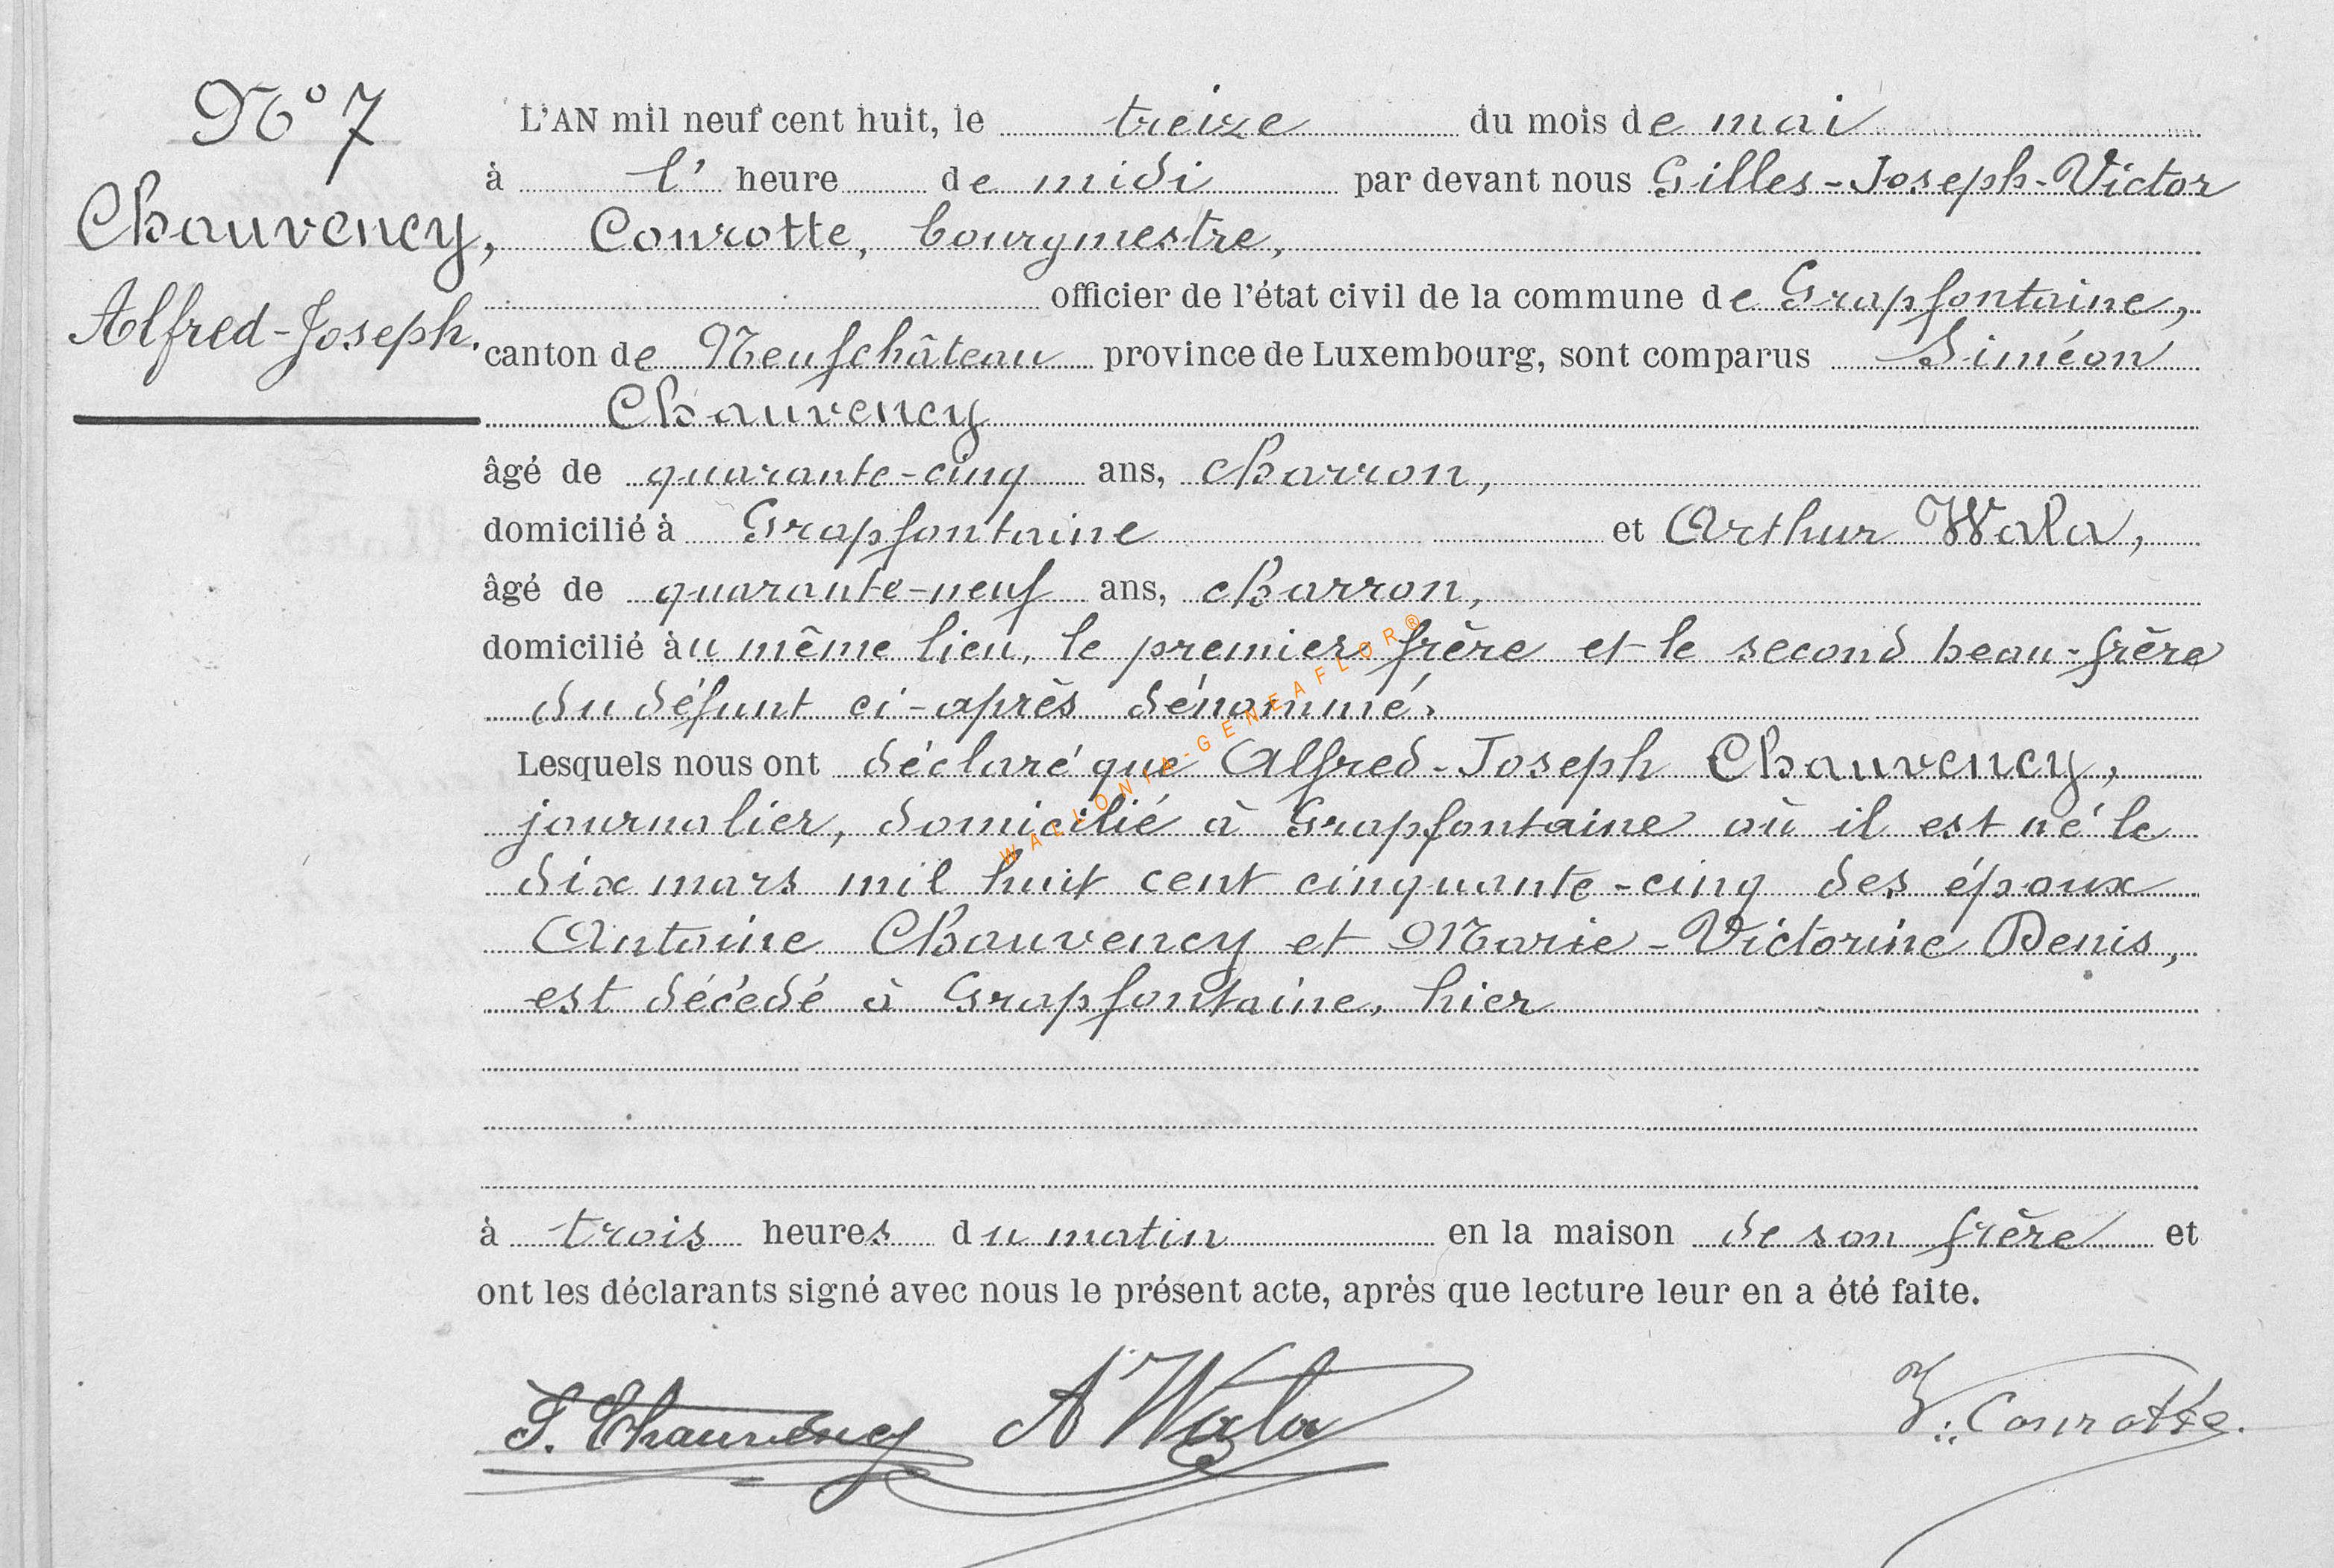 N° 7
Chauvency,
Alfred-Joseph.
L'AN mil neuf cent huit, le treize du mois de mai
à l' heure de midi par devant nous Gilles-Joseph-Victor
Conrotte, bourgmestre,
officier de l'état civil de la commune de Grapfontaine,
canton de Neufchâteau province de Luxembourg, sont comparus Siméon
Chauvency
âgé de quarante-cinq ans, charron,
domicilié à Grapfontaine et Arthur Wala,
âgé de quarante-neuf ans, charron,
domicilié au même lieu, le premier frère et le second beau-frère
du défunt ci-après dénommé.
Lesquels nous ont déclaré que Alfred-Joseph Chauvency,
journalier, domicilié à Grapfontaine où il est né le
dix mars mil huit cent cinquante-cinq des époux
Antoine Chauvency et Marie-Victorine Denis,
est décédé à Grapfontaine, hier
à trois heures du matin en la maison de son frère et
ont les déclarants signé avec nous le présent acte, après que lecture leur en a été faite.
S. Chauvency A Wala V. Conrotte.
WALLONIA-GENEAFLOR®